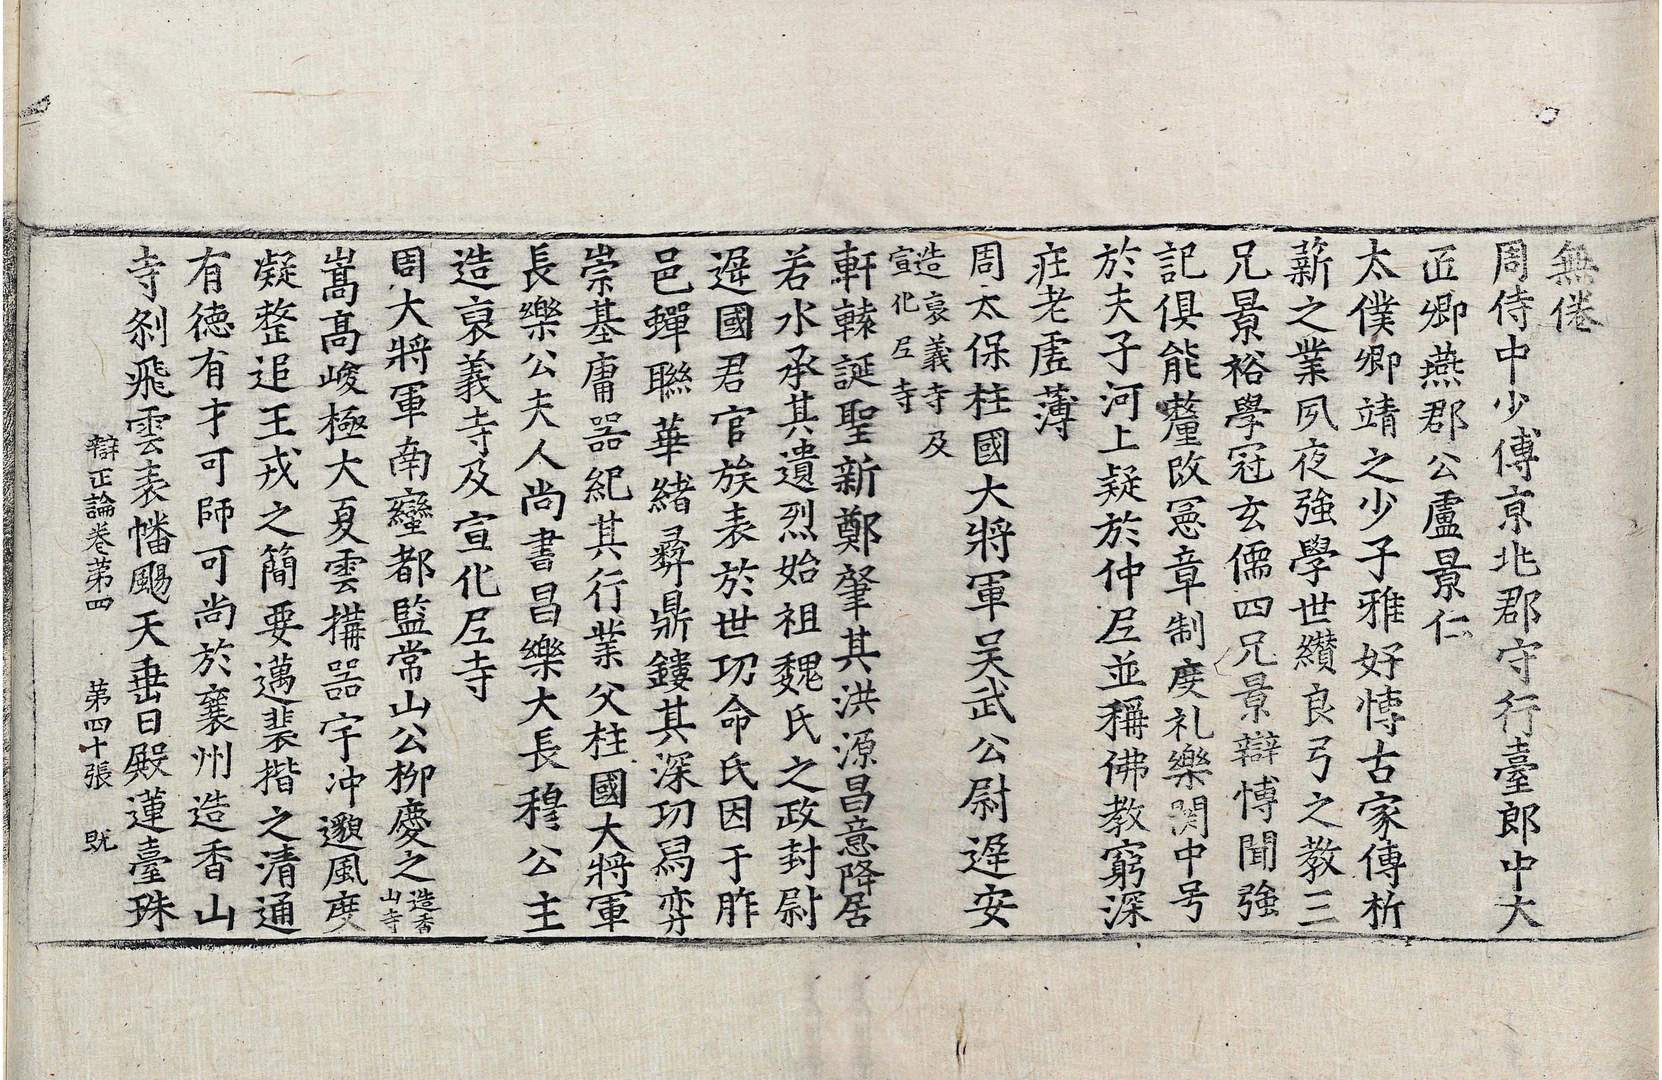 無倦
周侍中少傅京兆郡守行臺郎中大
匠卿燕郡公盧景仁
太僕卿靖之少子雅好博古家傳析
薪之業夙夜強學世纘良弓之教三
兄景裕學冠玄儒四兄景辯博聞強
記俱能釐改憲章制度礼樂関中号
於夫子河上疑於仲𡰱並稱佛教窮深
疰老虛薄
周太保柱國大將軍吴武公尉遟安
造裒義寺及
宣化𡰱寺
軒轅誕聖新鄭肇其洪源昌意降居
若水承其遺烈始祖魏氏之政封尉
遟國君官族表於世功命氏因于胙
邑蟬聯華緒彝鼎鏤其深功舄弈
崇基庸器紀其行業父柱國大將軍
長樂公夫人尚書昌樂大長穆公主
造裒義寺及宣化𡰱寺
周大將軍南蠻都監常山公柳慶之造香
山寺
嵩高峻極大夏雲搆器宇冲邈風度
凝整追王戎之簡要邁裴揩之清通
有德有才可師可尚於襄州造香山
寺刹飛雲表幡颺天垂日殿蓮臺珠
辯正論卷第四 第四十張 㒵